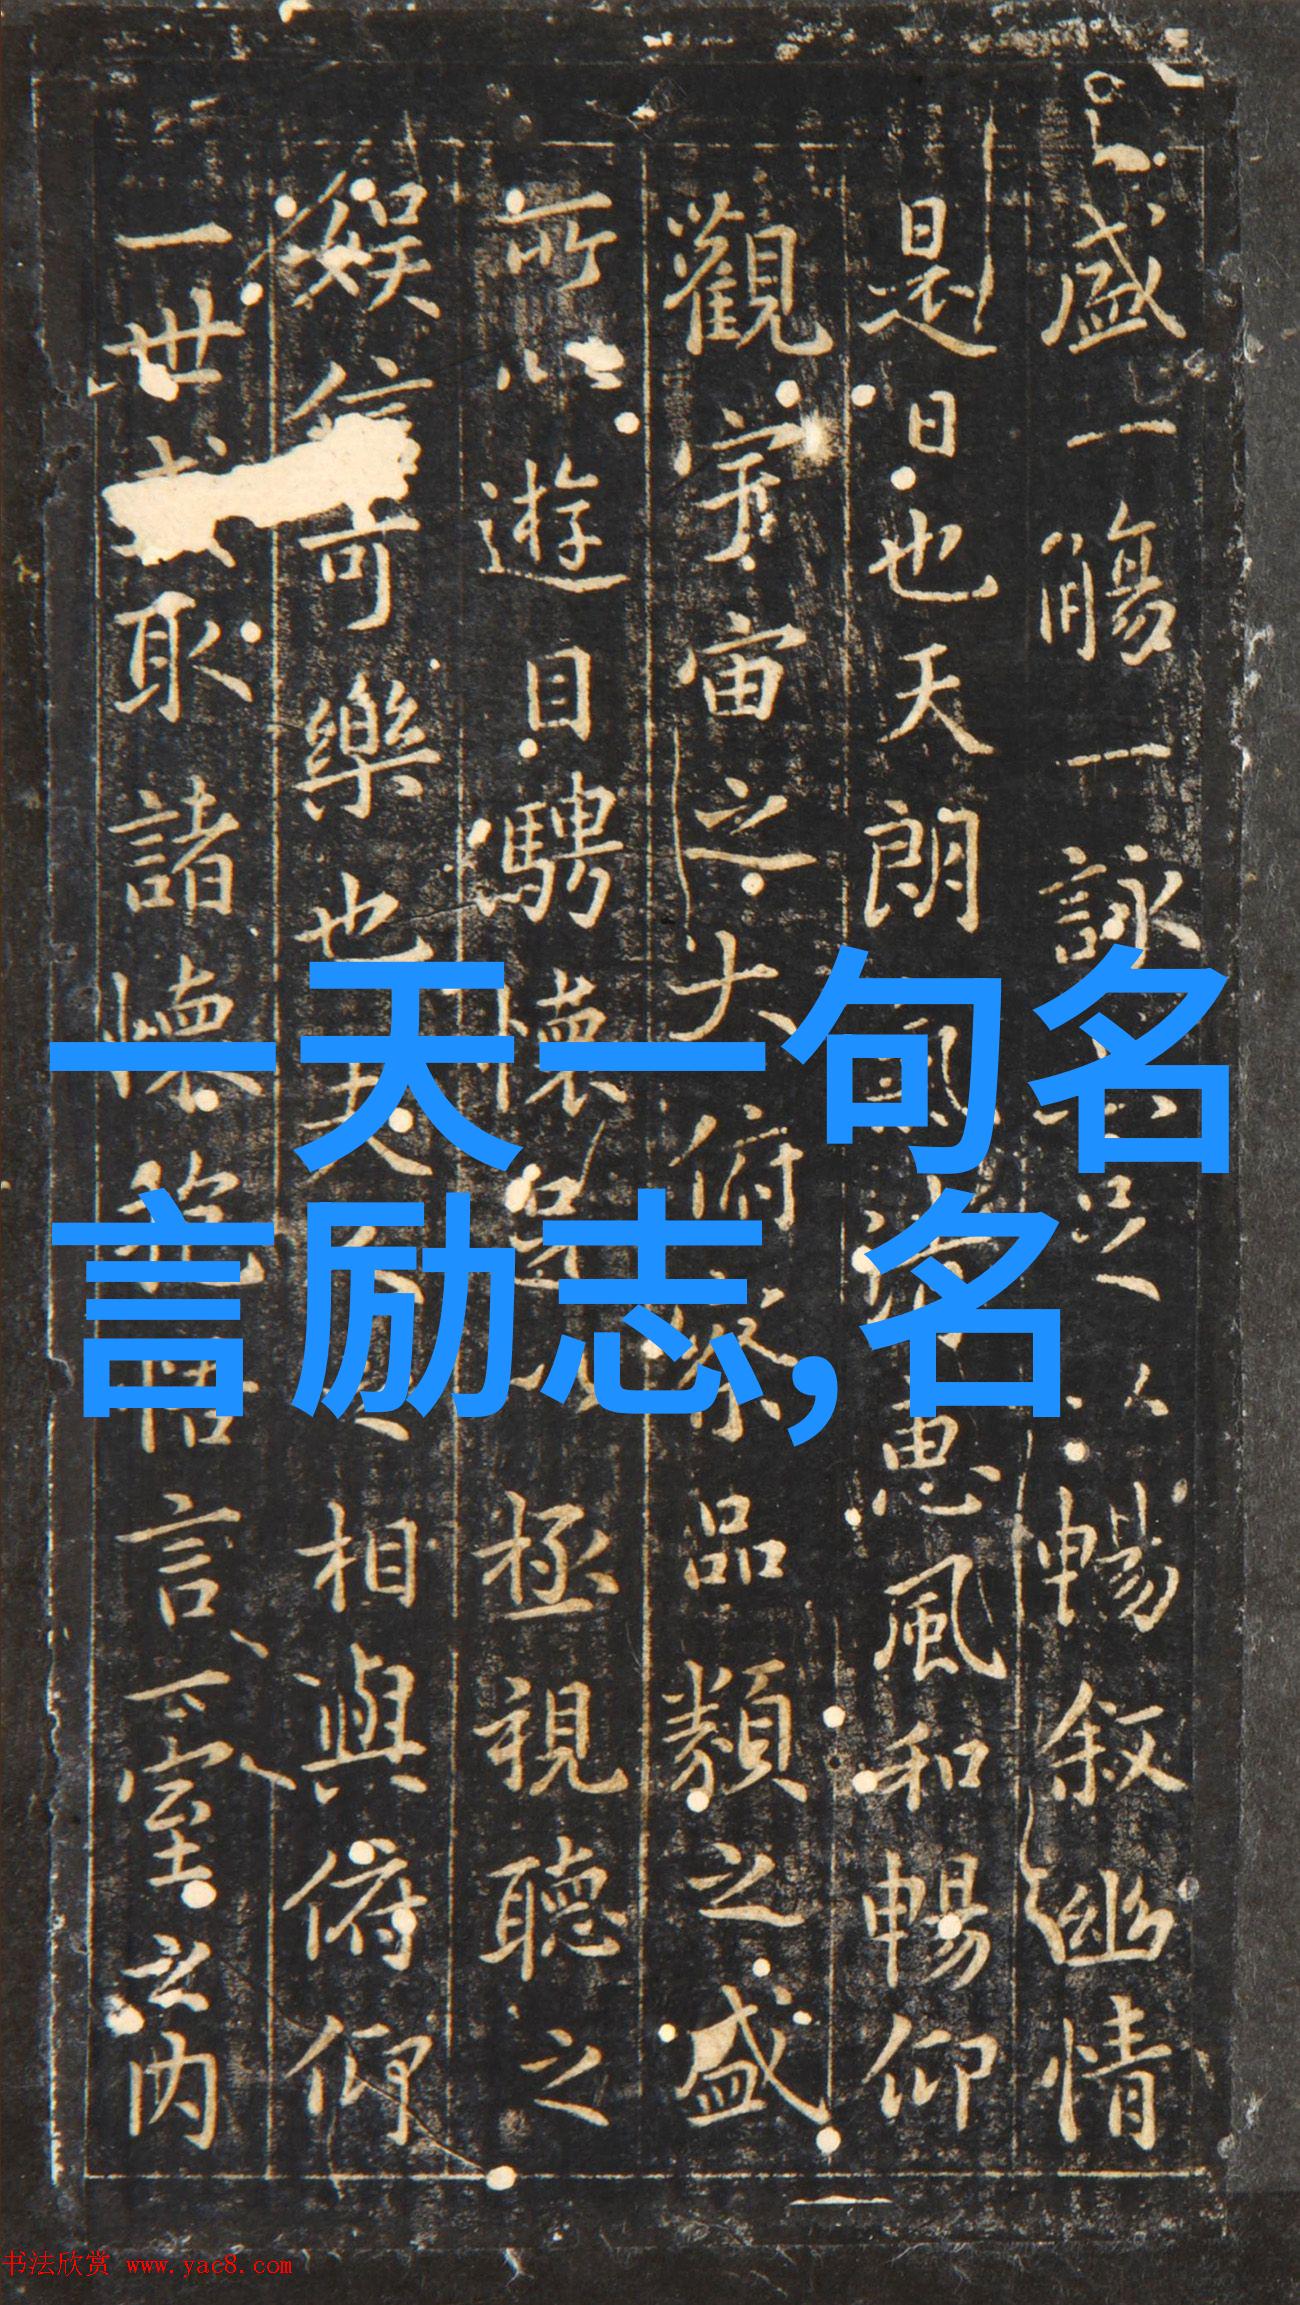 盛一觴一詠亦足以暢叙幽情
是日也天朗氣清惠風和暢仰
觀宇宙之大俯察品類之盛
所以遊目騁懷足以極視聽之
娱信可樂也夫人之相與俯仰
一世或取諸懷抱悟言一室之内
一天一句名
言励志,名
书法欣赏 www.yac8.com